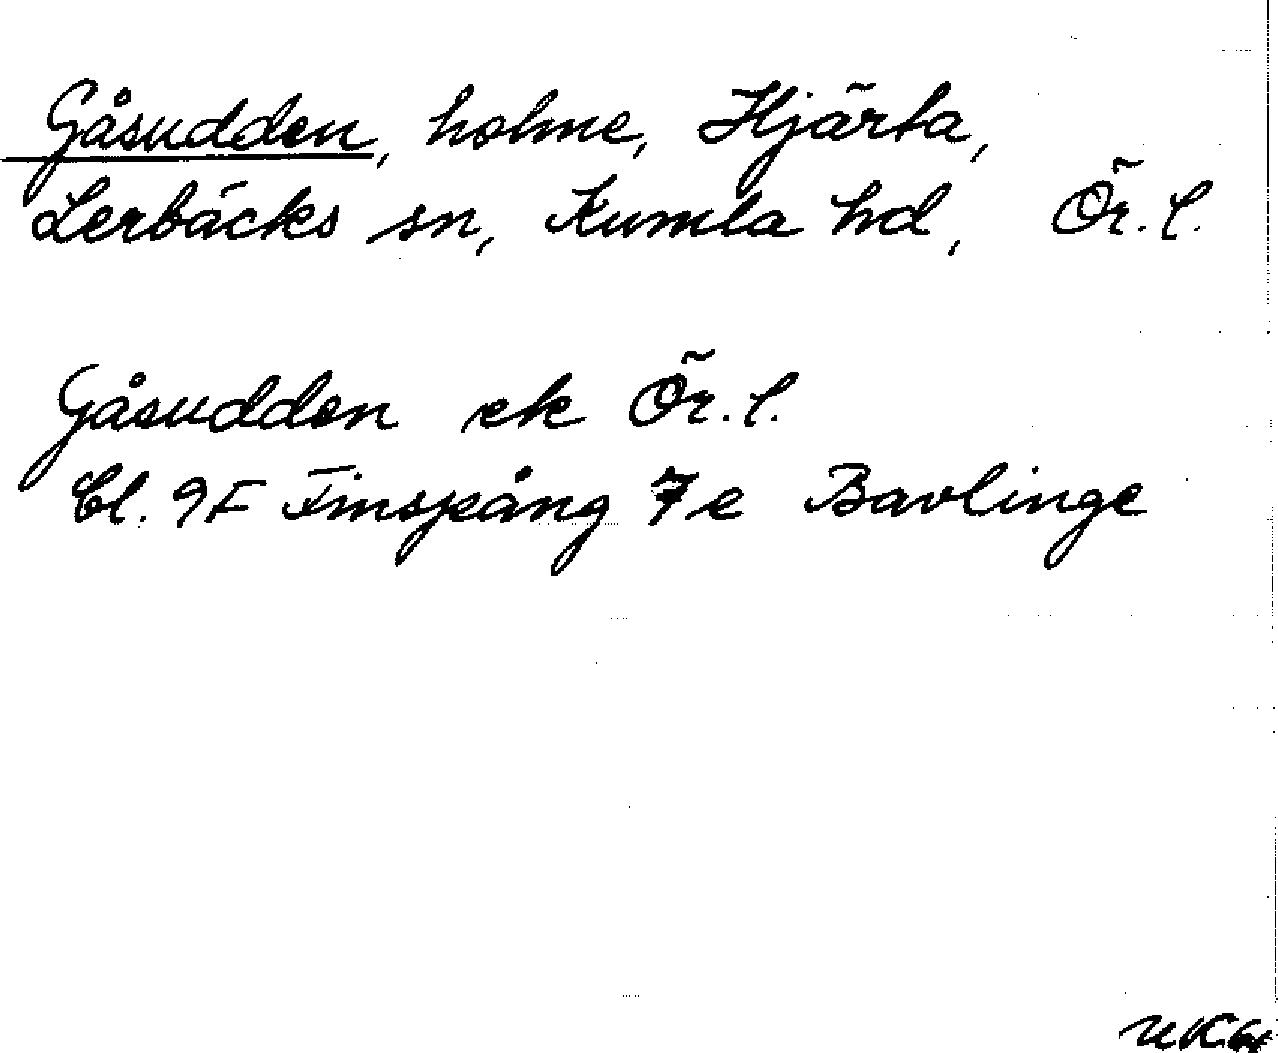 Gåsudden, holme, Hjärta,
Lerbäcks sn, Kumla hd, Ör. l.
Gåsudden ek Ör. l.
Bl. 9F Finspång 7e Bavlinge